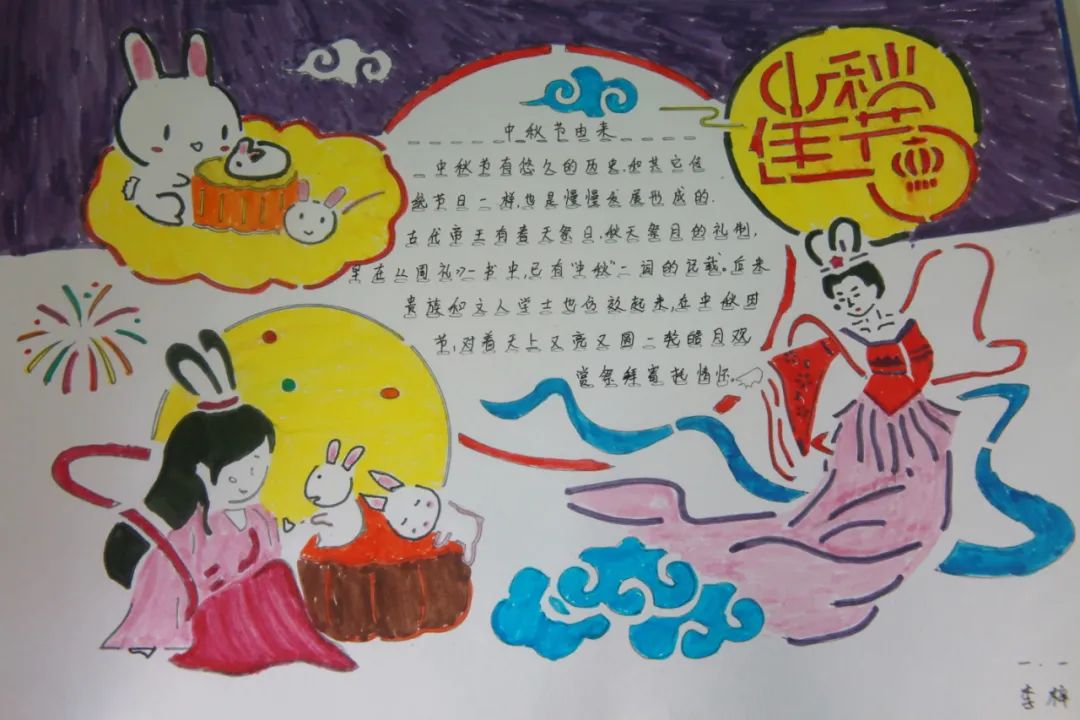 中秋佳节
中秋节由来
中秋节有悠久的历史,和其它传
统节日一样,也是慢慢发展形成的.
古代帝王有春天祭日,秋天祭月的礼制,
早在《周礼》一书中,已有"中秋"一词的记载。后来
贵族和文人学士也仿效起来,在中秋因
节,对着天上又亮又圆一轮皓月观
赏祭拜寄托情怀。
一.一
李梓